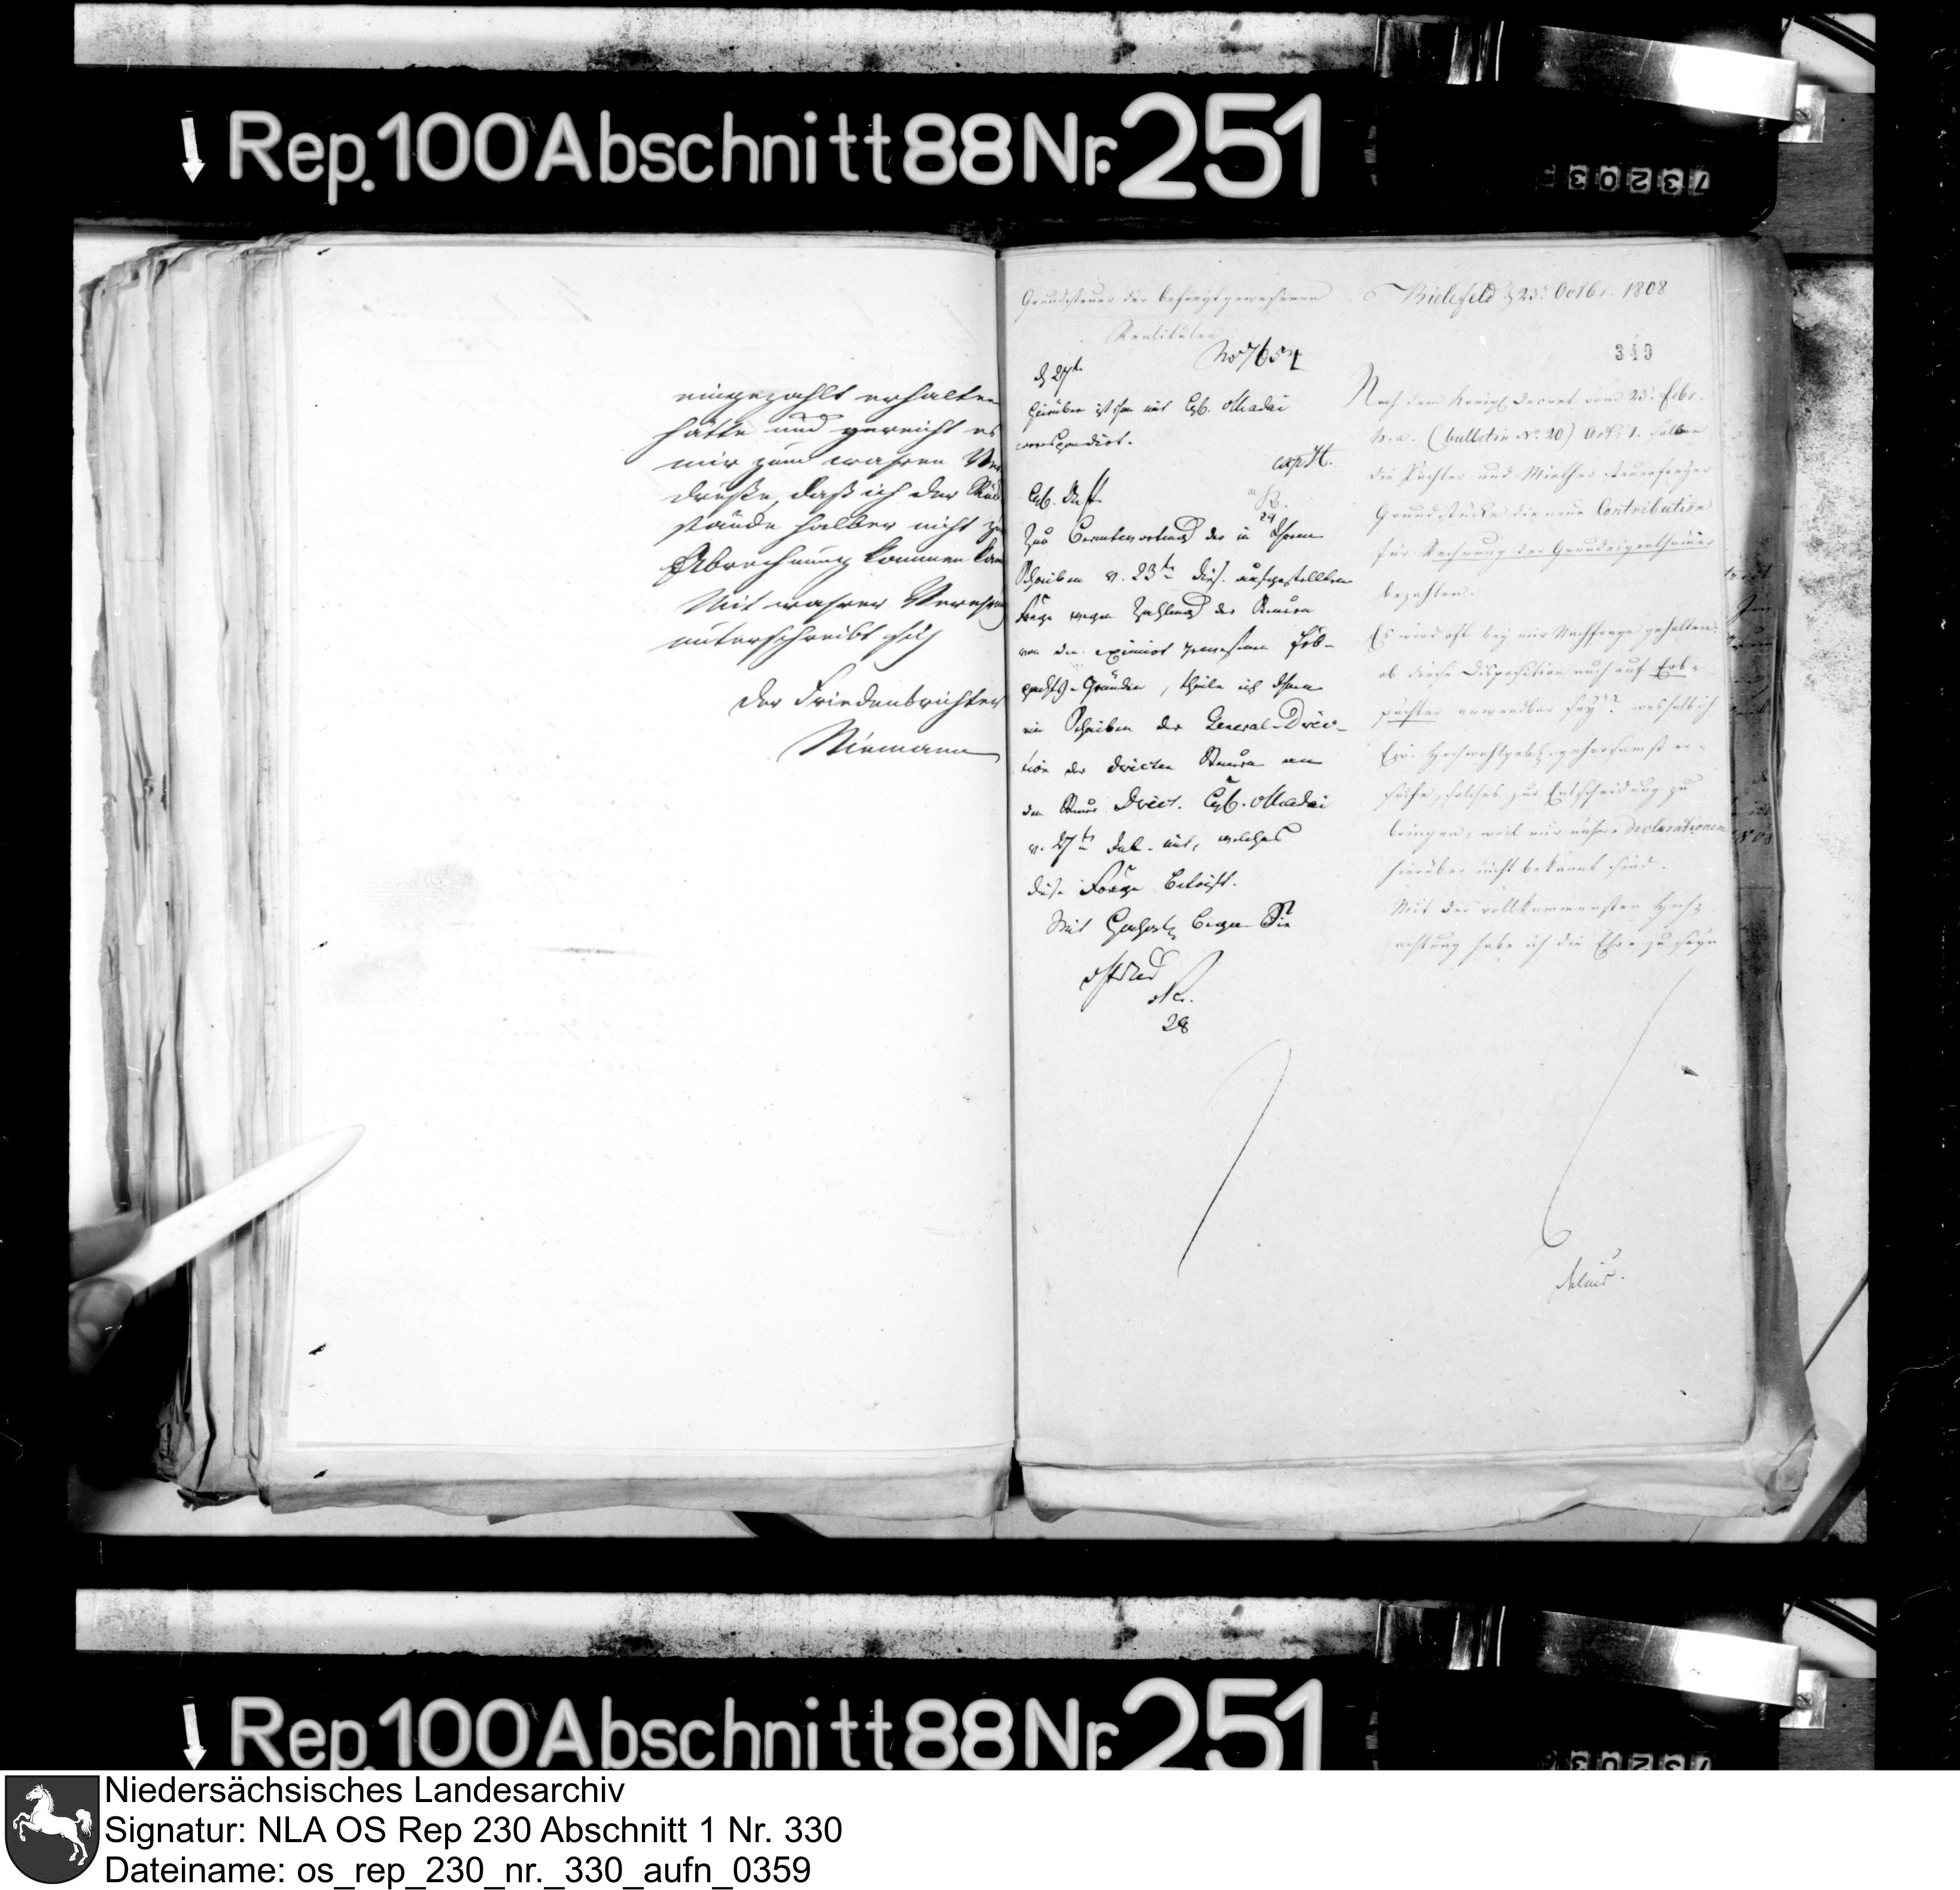 Rep. 100 Abschnitt 88 Nr. 251
eingezahlt erhalten
hätte und gereicht es
mir zum wahren Ver
drusse, daß ich der Rück
stände halber nicht zu
Abrechnung kommen kan
Mit wahrer Verehrung
unterschreibt sich
Der Friedensrichter
Niemann
Grundsteuer der befreyt gewesenen
Realitäten
No 7654
d 27t
Hierüber ist schon mit
correspondirt.
exp. H.
29
Zur Beantwortung der in Ihrem
Schreiben v. 23t dies. aufgestellten
Frage wegen Zahlung der Steuern
von den eximirt gewesenen Erb-
pachts-Gründen, theile ich Ihnen
ein Schreiben der General-Direc-
tion der directen Steuern an
den Steuer Direct. Madai
v. 27t mit, welches
diese Frage betrifft.
Mit
28
Bielefeld d 23t Octbr. 1808
349
Nach dem Königl. Decret vom 23t Febr.
h. a. (bulletin No. 20) Art. 1. sollen
die Pächter und Miether steuerfreyer
Grundstücke die neue Contribution
für Rechnung der Grundeigenthümer
bezahlen.
Es wird oft bey mir Nachfrage gehalten:
ob diese Disposition auch auf Erb-
pächter anwendbar sey? weshalb ich
Ew. Hochwohlgeb. gehorsamst er-
suche, solches zur Entscheidung zu
bringen, weil mir nähere declarationen
hierüber nicht bekannt sind.
Mit der vollkommensten Hoch-
achtung habe ich die Ehre zu seyn
1808
Rep. 100 Abschnitt 88 Nr. 251
Niedersächsisches Landesarchiv
Signatur: NLA OS Rep 230 Abschnitt 1 Nr. 330
Dateiname: os_rep_230_nr._330_aufn_0359